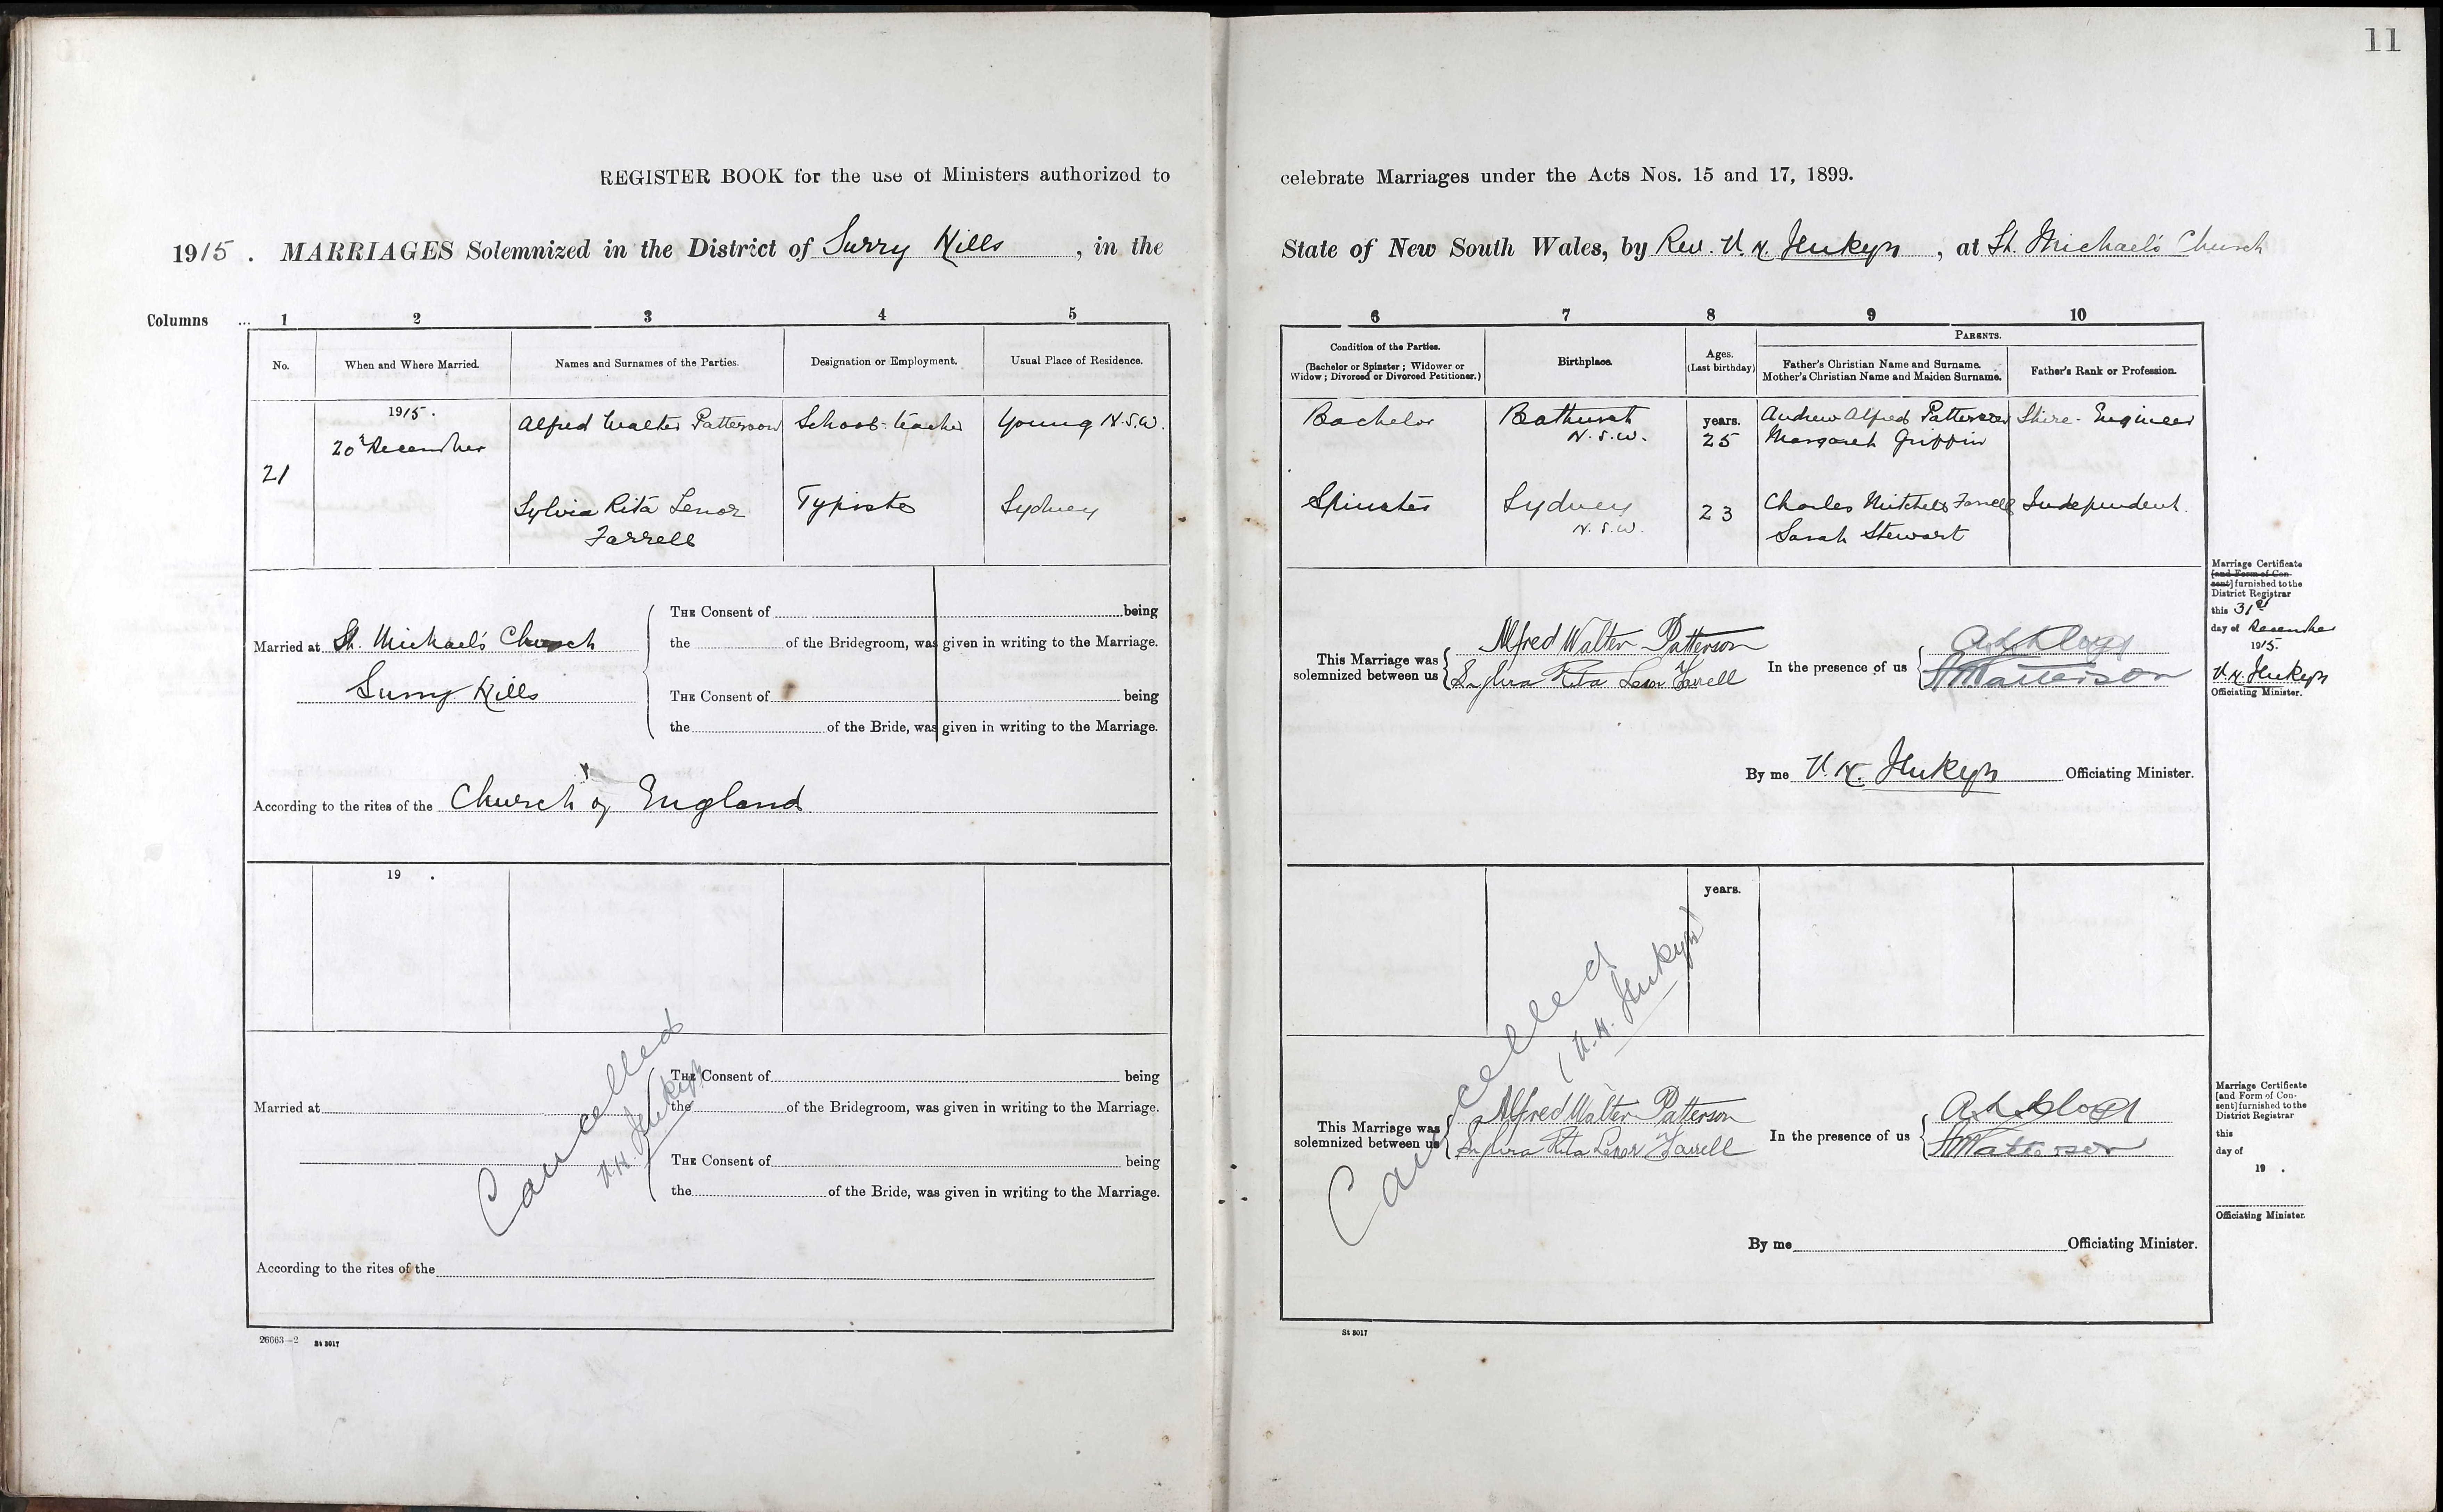 11
REGISTER BOOK for the use of Ministers authorized to celebrate Marriages under the Acts Nos. 15 and 17, 1899.
1915. MARRIAGES Solemnized in the District of Surry Hills, in the State of New South Wales, by Rev. V. H. Jenkyn, at St. Michael's Church
Columns ... 1 2 3 4 5 6 7 8 9 10
No. When and Where Married. Names and Surnames of the Parties. Designation or Employment. Usual Place of Residence.
Condition of the Parties.
(Bachelor or Spinster; Widower or
Widow; Divorced or Divorced Petitioner.)
Birthplace.
Ages.
(Last birthday)
PARENTS.
Father's Christian Name and Surname.
Mother's Christian Name and Maiden Surname.
Father's Rank or Profession.
1915.
20th December
21
Alfred Walter Patterson School-teacher Young N.S.W.
Sylvia Rita Lenor Typiste Sydney
Farrell
Bachelor Bathurst years. Andrew Alfred Patterson Shire-Engineer
N.S.W. 25 Margaret Griffin
Spinster Sydney 23 Charles Mitchell Farrell Independent.
N.S.W. Sarah Stewart
Married at St. Michael's Church
Surry Hills
THE Consent of being
the of the Bridegroom, was given in writing to the Marriage.
THE Consent of being
the of the Bride, was given in writing to the Marriage.
According to the rites of the Church of England
This Marriage was
solemnized between us
Alfred Walter Patterson
Sylvia Rita Lenor Farrell
In the presence of us
Patterson
By me V. H. Jenkyn Officiating Minister.
Marriage Certificate
[and Form of Con-
sent] furnished to the
District Registrar
this 31st
day of December
1915.
V. H. Jenkyn
Officiating Minister.
19 .
years.
Married at
THE Consent of being
the of the Bridegroom, was given in writing to the Marriage.
THE Consent of being
the of the Bride, was given in writing to the Marriage.
According to the rites of the
Cancelled
V. H. Jenkyn
Cancelled
(V. H. Jenkyn)
This Marriage was
solemnized between us
Alfred Walter Patterson
Sylvia Rita Lenor Farrell
In the presence of us
Patterson
By me Officiating Minister.
Marriage Certificate
[and Form of Con-
sent] furnished to the
District Registrar
this
day of
19 .
Officiating Minister.
26663—2 St 3017
St 3017